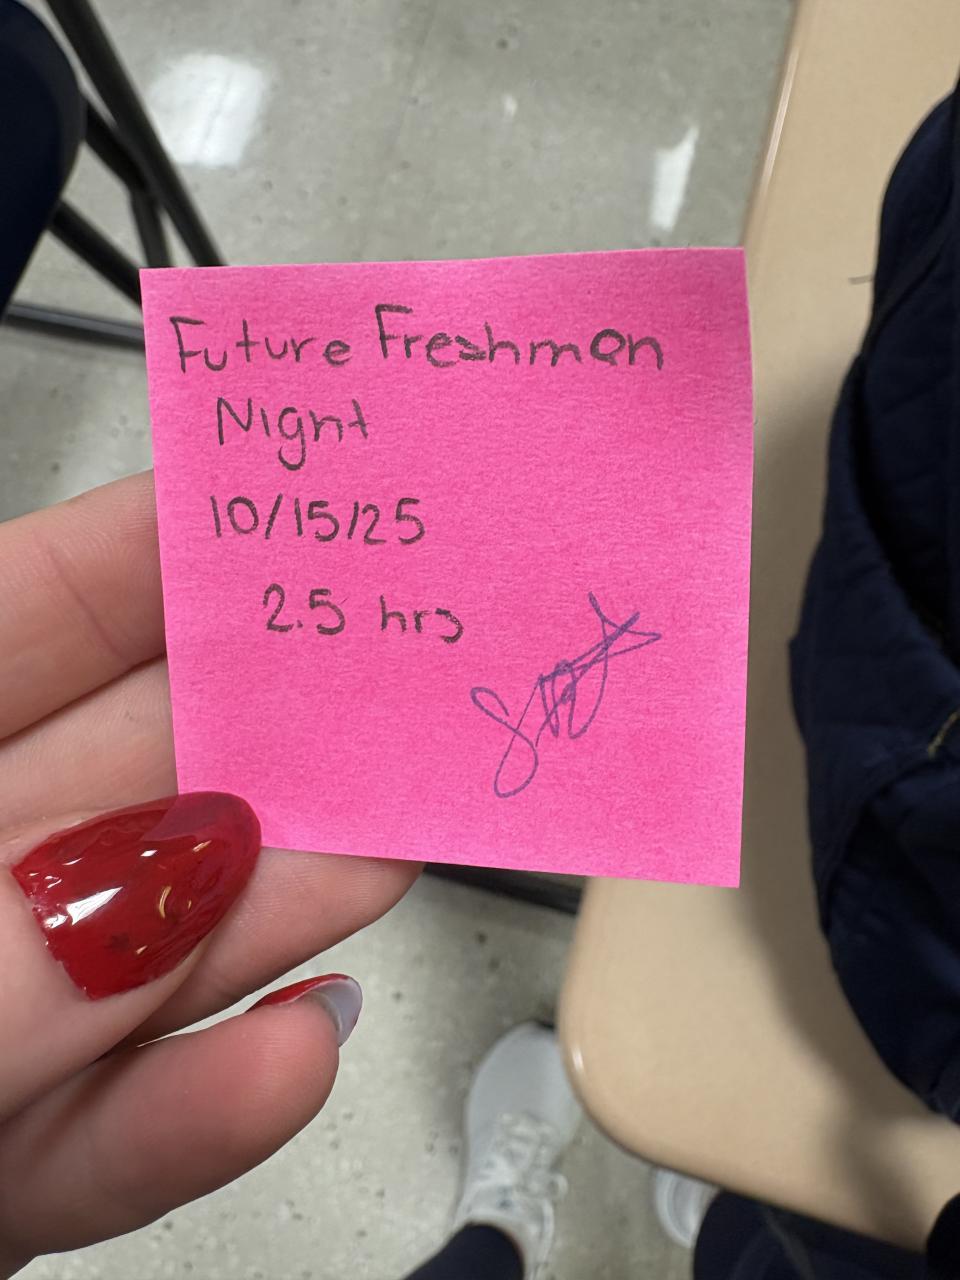 Future Freshman
Night
10/15/25
2.5 hrs